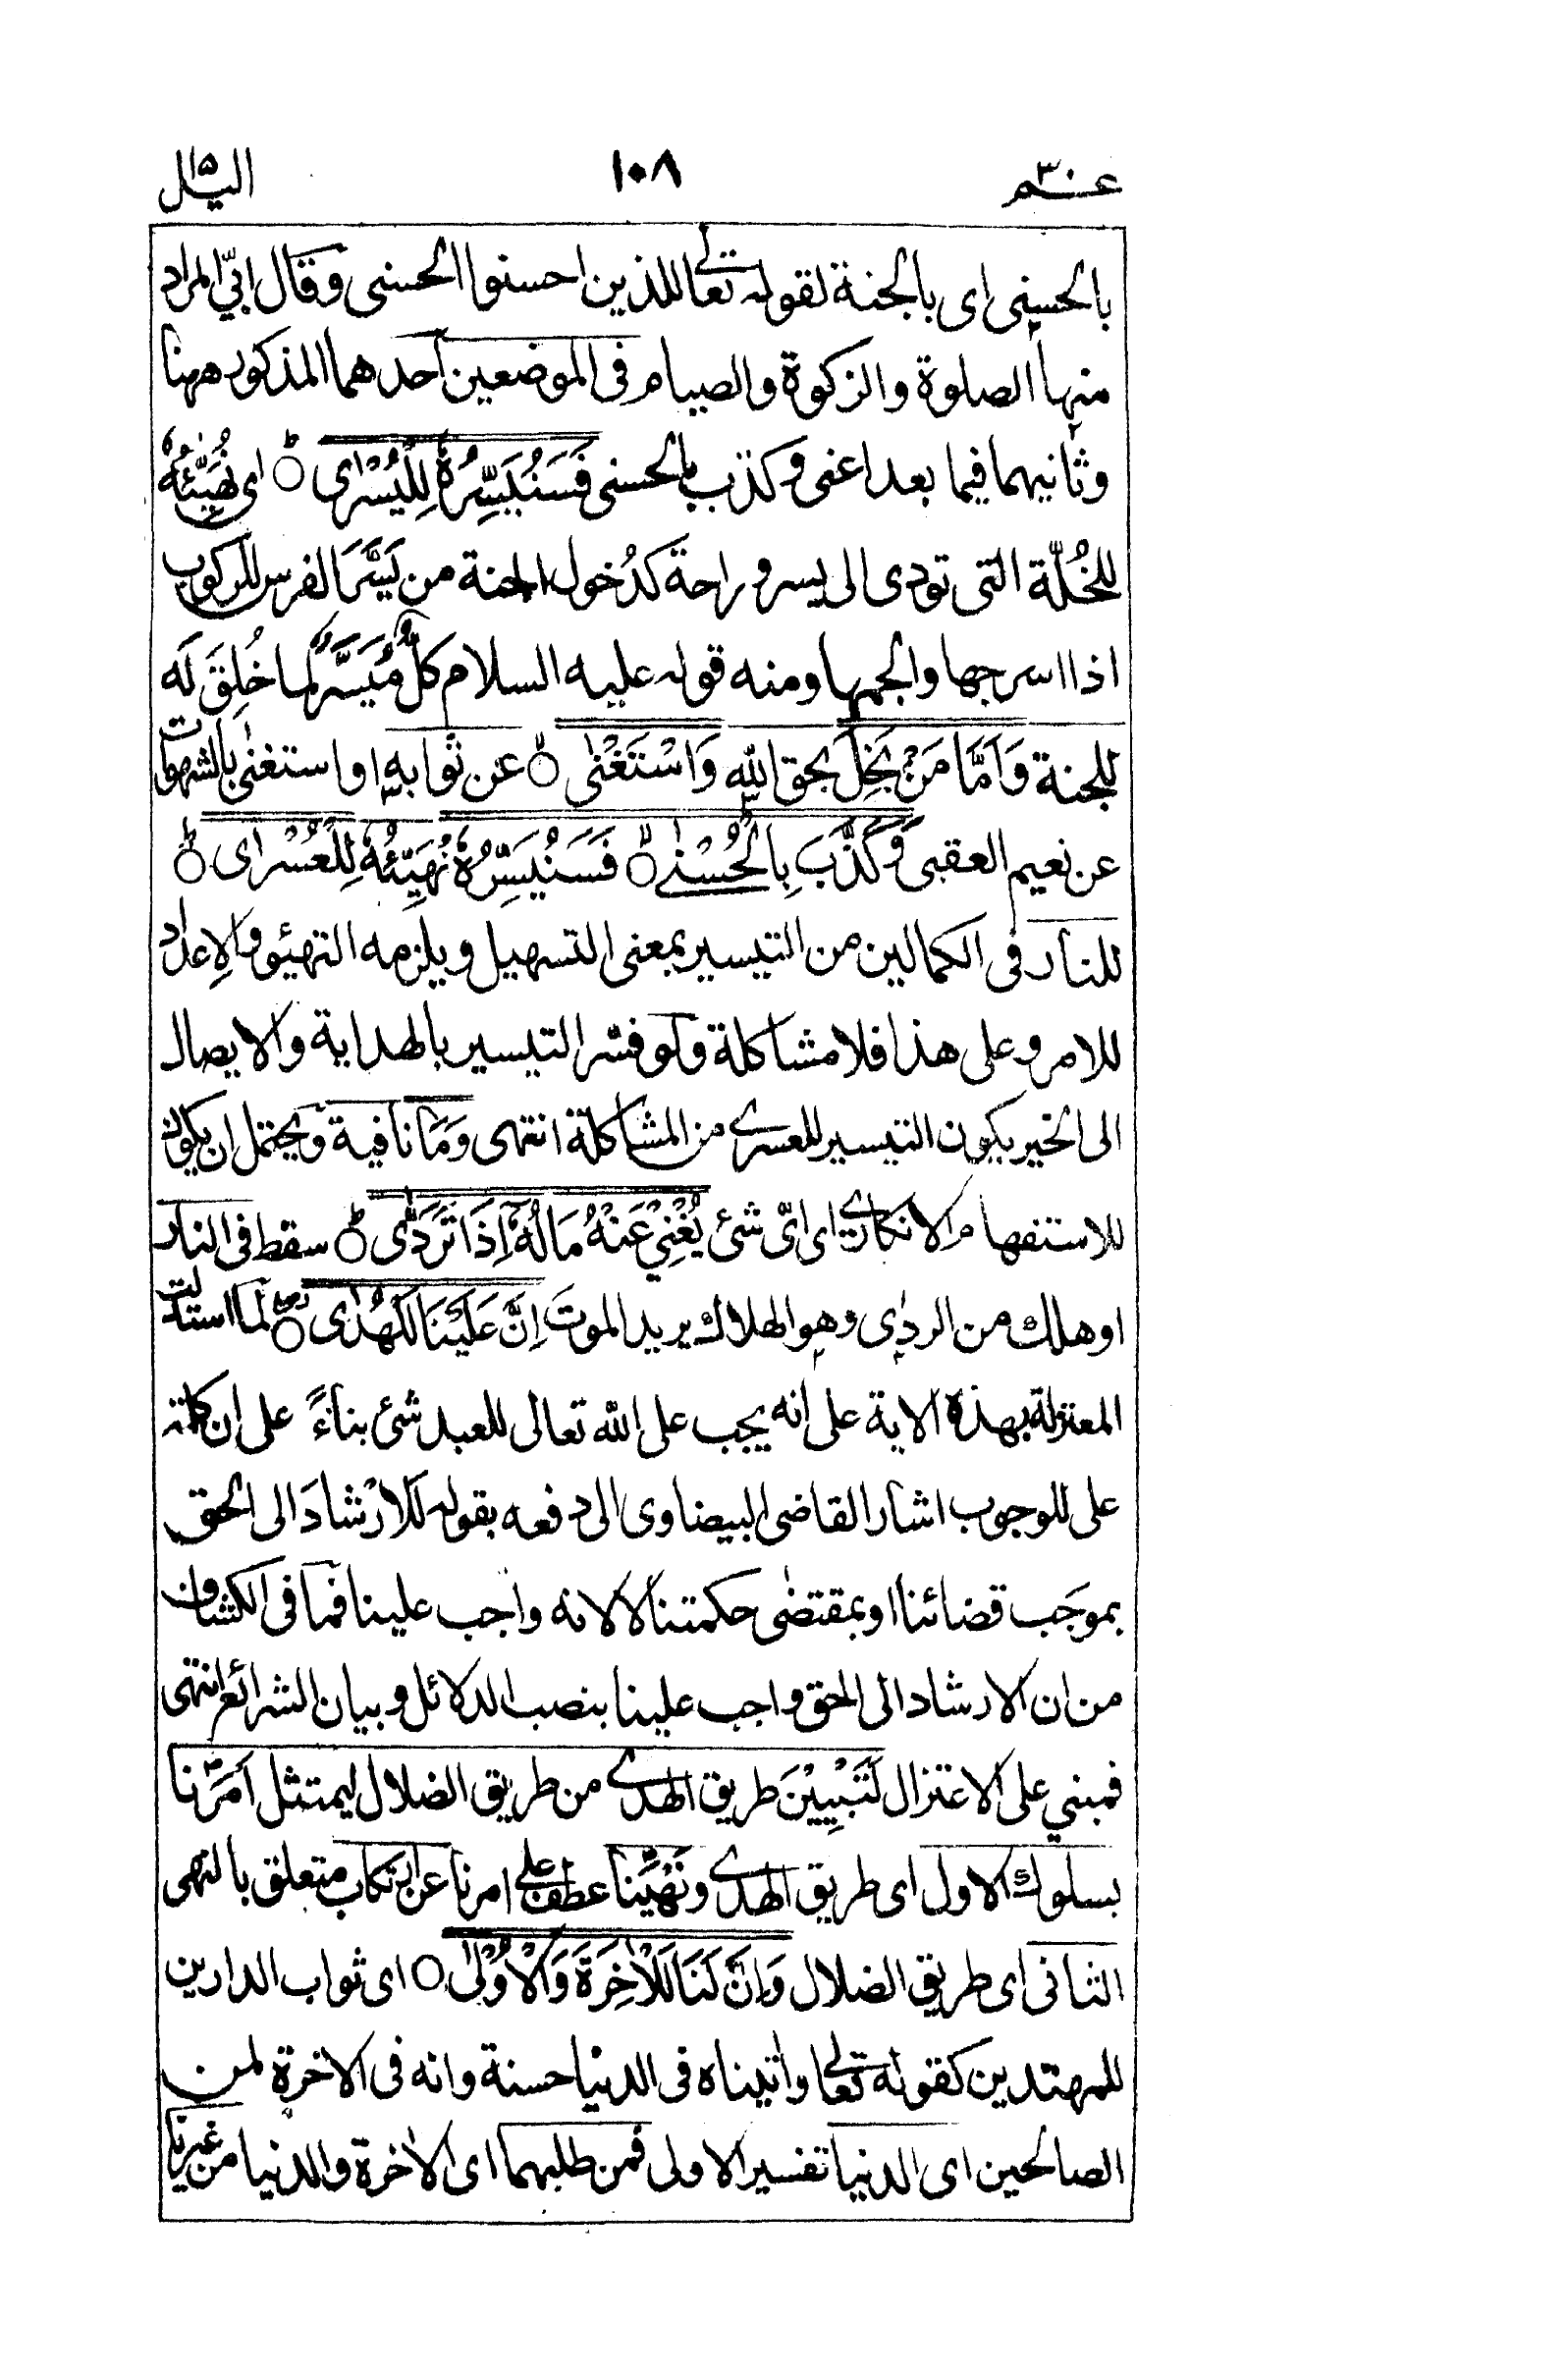 عـــم ٣٠
١٠٨
اليل ١٥
بالحسنى اى بالجنة لقوله تعالى للذين احسنوا الحسنى وقال ابيّ المراد
منها الصلوة والزكوة والصيام فى الموضعين احدهما المذكور ههنا
وثانيهما فيما بعد اعنى وكذب بالحسنى فَسَنُيَسِّرُهٗ لِلْيُسْرٰى ○ اى نُهَيِّئُهٗ
للخُلّة التى تودى الى يسر وراحة كدُخول الجنة من يَسَّرَ الفرس للركوب
اذا اسرجها والجمها ومنه قوله عليه السلام كلٌّ مُيَسَّرٌ لما خُلِقَ لَه
للجنة وَاَمَّا مَنْ بَخِلَ بحق الله وَاسْتَغْنٰى ○ عن ثوابه او استغنى بالشهوات
عن نعيم العقبى وَكَذَّبَ بِالْحُسْنٰے ○ فَسَنُيَسِّرُهٗ نُهَيِّئُهٗ لِلْعُسْرٰى ○
للنار فى الكمالين من التيسير بمعنى التسهيل ويلزمه التهيئو والاِعداد
للامر وعلى هذا فلا مشاكلة ولو فسّر التيسير بالهداية والايصال
الى الخير يكون التيسير للعسرے من المشاكلة انتهى وَمَا نافية ويحتمل ان يكون
للاستفهام الانكارے اى اىّ شئ يُغْنِيْ عَنْهُ مَالُهٗٓ اِذَا تَرَدّٰى ○ سقط فى النار
او هلك من الردٰى وهو الهلاك يريد الموتَ اِنَّ عَلَيْنَا لَلْهُدٰى ○ لما استدلت
المعتزلة بهذه الاية على انه يجب على الله تعالى للعبد شئ بناءً على ان كلمة
على للوجوب اشار القاضى البيضاوى الى دفعه بقوله للارْشادَ الى الحق
بموجَب قضائنا او بمقتضٰى حكمتنا لا لانه واجب علينا فما فى الكشاف
من ان الارشاد الى الحق واجب علينا بنصب الدلائل وبيان الشرائع انتهى
فمبني على الاعتزال لَتَبْيِيْنَ طريق الهدے من طريق الضلال ليمتثل اَمرَنا
بسلوك الاول اى طريق الهدے ونَهْيَنا عطف على امرنا عن ارتكاب متعلق بالنهى
الثانى اى طريق الضلال وَاِنَّ لَنَا لَلْاٰخِرَةَ وَالْاُوْلٰى ○ اى ثواب الدارين
للمهتدين كقوله تعالى واٰتيناه فى الدنيا حسنة وانه فى الاخرة لمن
الصالحين اى الدنيا تفسير الاولى فمن طلبهما اى الاٰخرة والدنيا من غيرنا